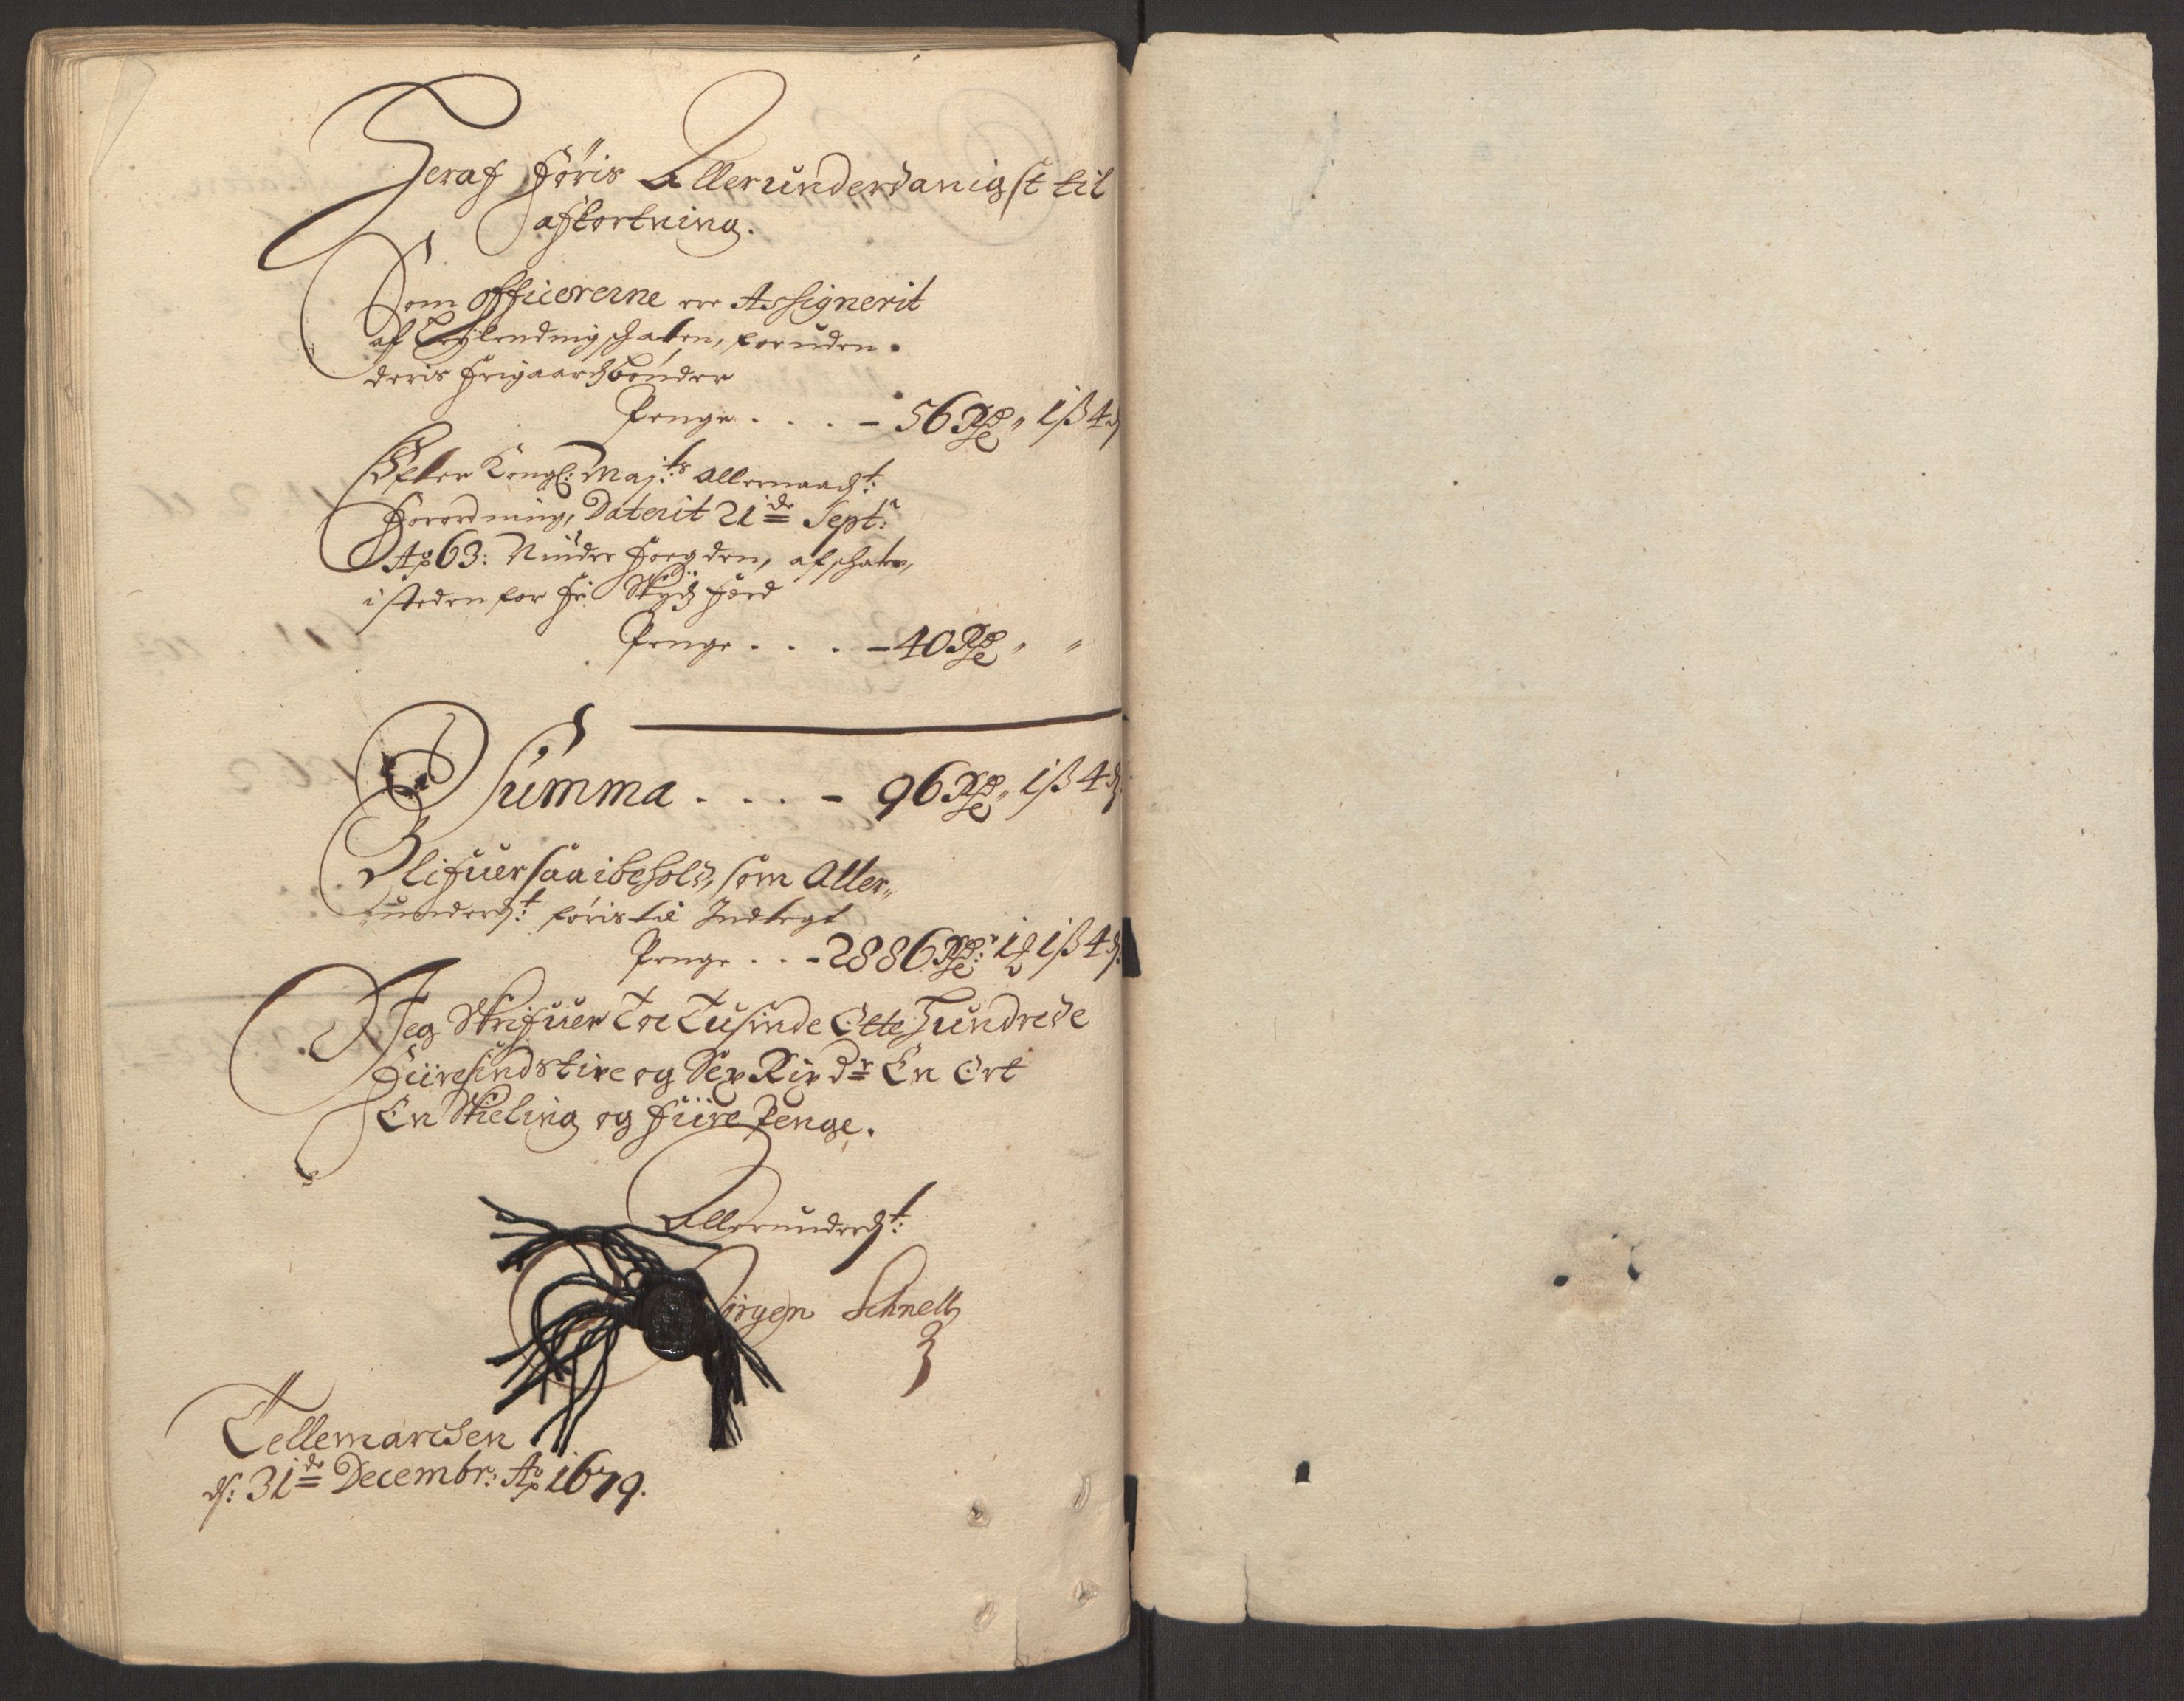 Heraf føris Allerunderdanigst til
afkortning.
Som officererne ere Assignerit
af schaten, foruden
deris frigaardsbønder
Penge . . . - 56 Rdr " 1 ß 4 d
Efter Kongl: Maj:ts allernaadt:
forordning, Daterit 21de Sept:r
Ao 63: Nÿder fogden, af schaten,
i steden for frÿ Skÿdz færd
Penge . . . - 40 Rdr " "
Summa . . . - 96 Rdr " 1 ß 4 d
Blifuer saa i behold, som Aller„
underdt: føris til Indtegt
Penge . . - 2886 Rdr: 1 ort 1 ß 4 d:
Jeg Skrifuer Toe Tusinde Otte Hundrede
Fiiresindstive og Sex Rix dr En Ort
En Skieling og fiire Penge.
Allerunderdt:
Jørgen Schnell
Tellemarchen
d: 31de Decembr: Ao 1679.